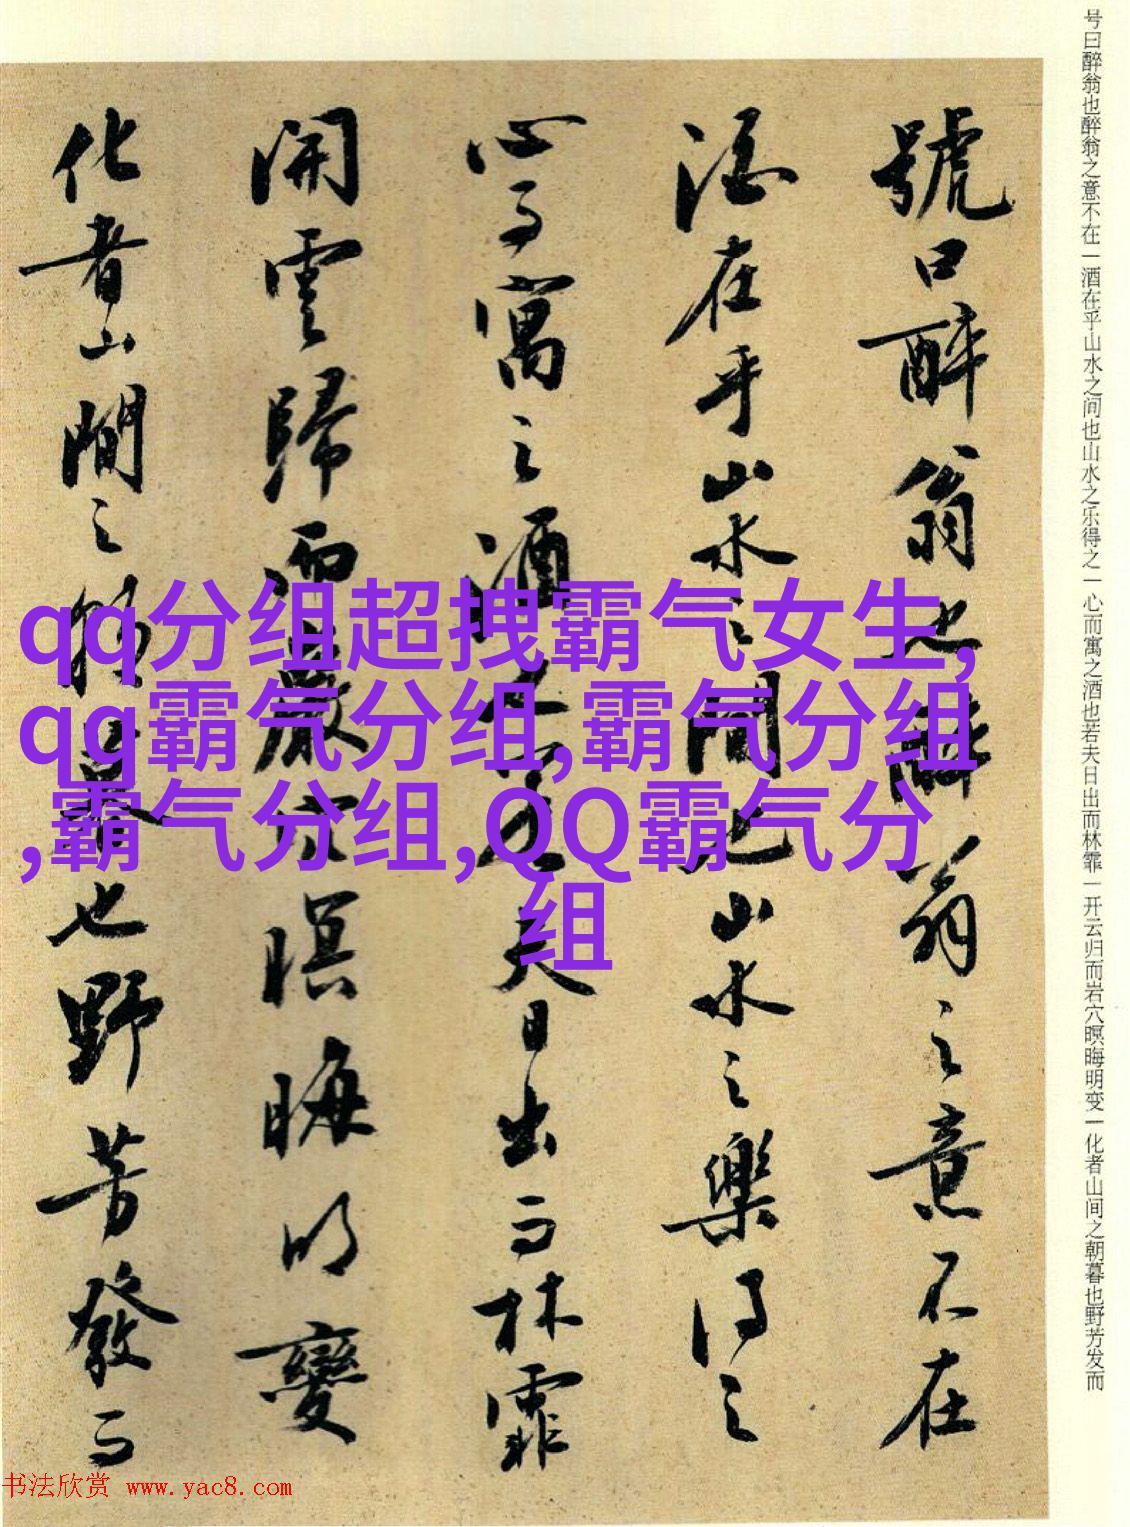 号曰醉翁也醉翁之意不在一酒在乎山水之间也山水之乐得之一心而寓之酒也若夫日出而林霏一开云归而岩穴暝晦明变一化者山间之朝暮也野芳发而
號曰醉翁也醉翁之意不在
酒在乎山水之間也山水之樂得之
心而寓之酒也若夫日出而林霏
開雲歸而巖穴暝晦明變
化者山間之朝暮也野芳發而
qq分组超拽霸气女生,
qg霸气分组,霸气分组
,霸气分组,QQ霸气分
组
书法欣赏 www.yac8.com